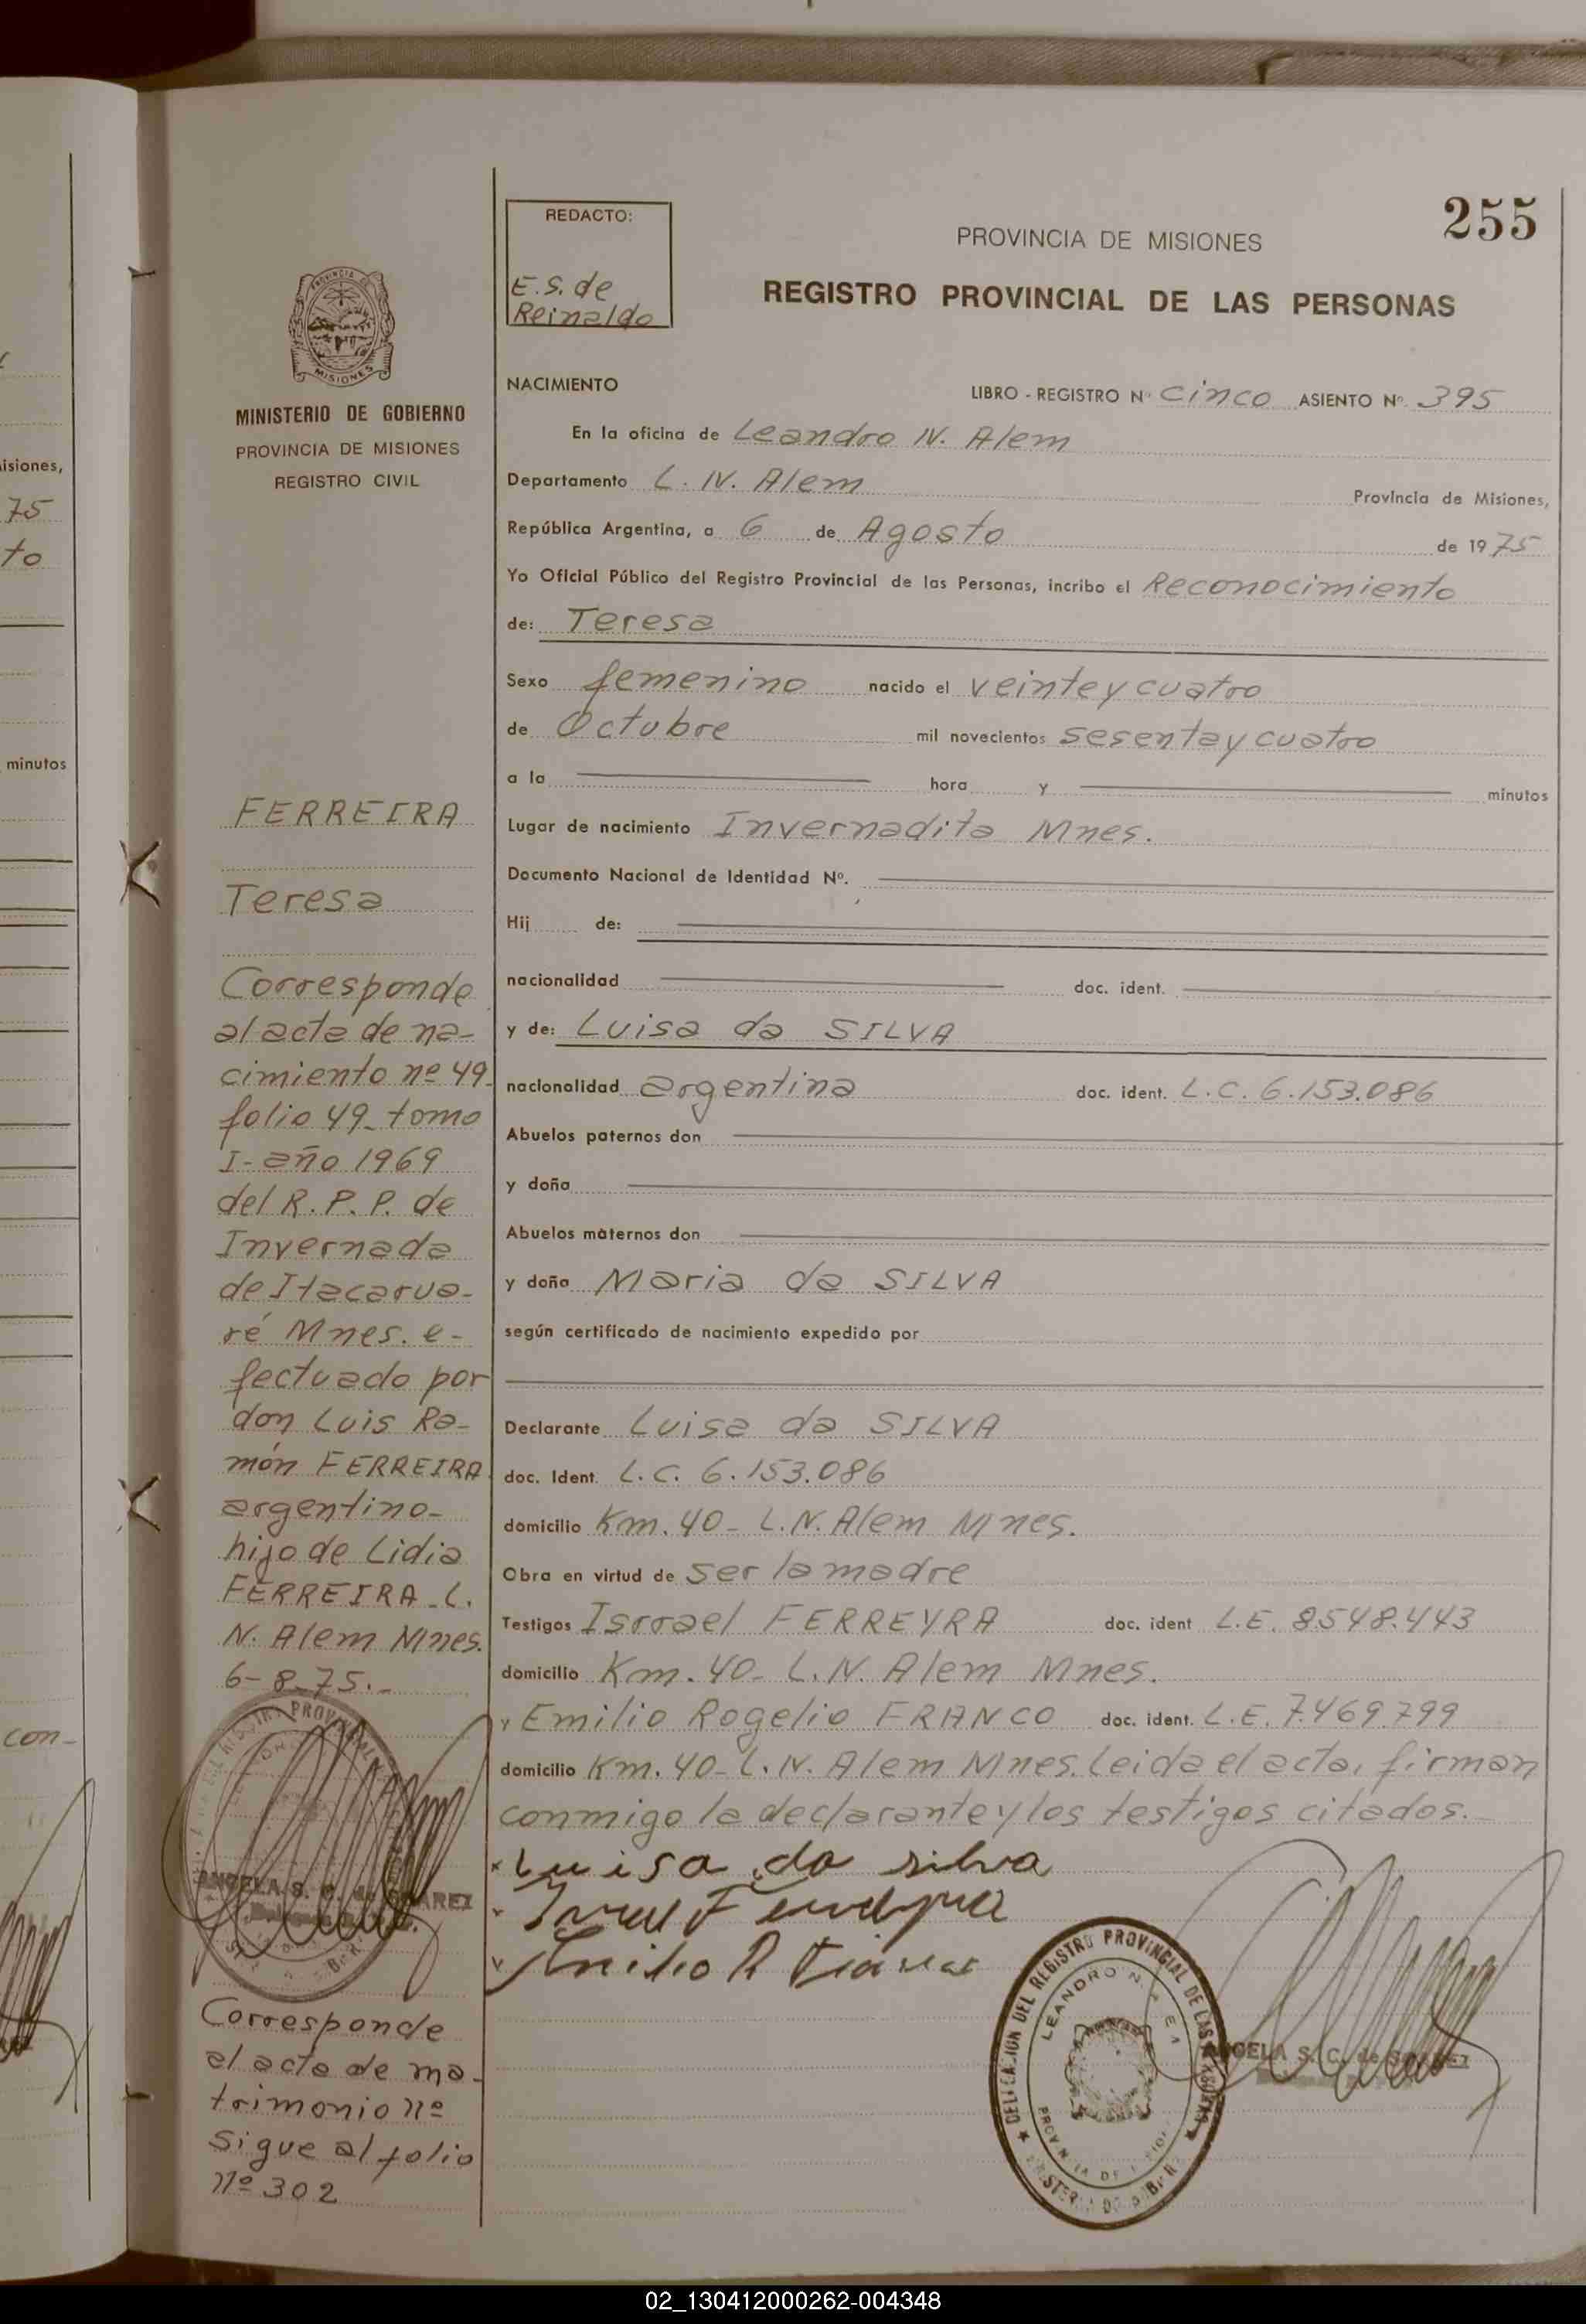 255
REDACTO:
E. S. de
Reinaldo
PROVINCIA DE MISIONES
REGISTRO PROVINCIAL DE LAS PERSONAS
PROVINCIA
MISIONES
MINISTERIO DE GOBIERNO
PROVINCIA DE MISIONES
REGISTRO CIVIL
NACIMIENTO
LIBRO - REGISTRO Nº Cinco ASIENTO Nº 395
En la oficina de Leandro N. Alem
Departamento L. N. Alem Provincia de Misiones,
República Argentina, a 6 de Agosto de 1975
Yo Oficial Público del Registro Provincial de las Personas, incribo el Reconocimiento
de: Teresa
Sexo femenino nacido el veinte y cuatro
de Octubre mil novecientos sesenta y cuatro
a la hora y minutos
Lugar de nacimiento Invernadita Mnes.
Documento Nacional de Identidad Nº.
Hij de:
nacionalidad doc. ident.
y de: Luisa da SILVA
nacionalidad argentina doc. ident. L.C. 6.153.086
Abuelos paternos don
y doña
Abuelos maternos don
y doña Maria da SILVA
según certificado de nacimiento expedido por
Declarante Luisa da SILVA
doc. Ident. L.C. 6.153.086
domicilio Km. 40 - L.N. Alem Mnes.
Obra en virtud de ser la madre
Testigos Isrrael FERREYRA doc. ident L.E. 8.548.443
domicilio Km. 40 - L.N. Alem Mnes.
y Emilio Rogelio FRANCO doc. ident. L.E. 7.469.799
domicilio Km. 40 - L.N. Alem Mnes. Leida el acta, firman
conmigo la declarante y los testigos citados.-
x Luisa da silva
FERREIRA
Teresa
Corresponde
al acta de na-
cimiento nº 49-
folio 49- tomo
I- año 1969
del R. P. P. de
Invernada
de Itacarua-
ré Mnes. e-
fectuado por
don Luis Ra-
món FERREIRA
argentino-
hijo de Lidia
FERREIRA - L.
N. Alem Mnes.
6-8-75.-
ANGELA S. C. de SUAREZ
Corresponde
al acta de ma-
trimonio nº
sigue al folio
nº 302
DELEGACION DEL REGISTRO PROVINCIAL DE LAS PERSONAS
LEANDRO N.
ANGELA S. C. de SUAREZ
isiones,
75
to
minutos
con-
02_130412000262-004348